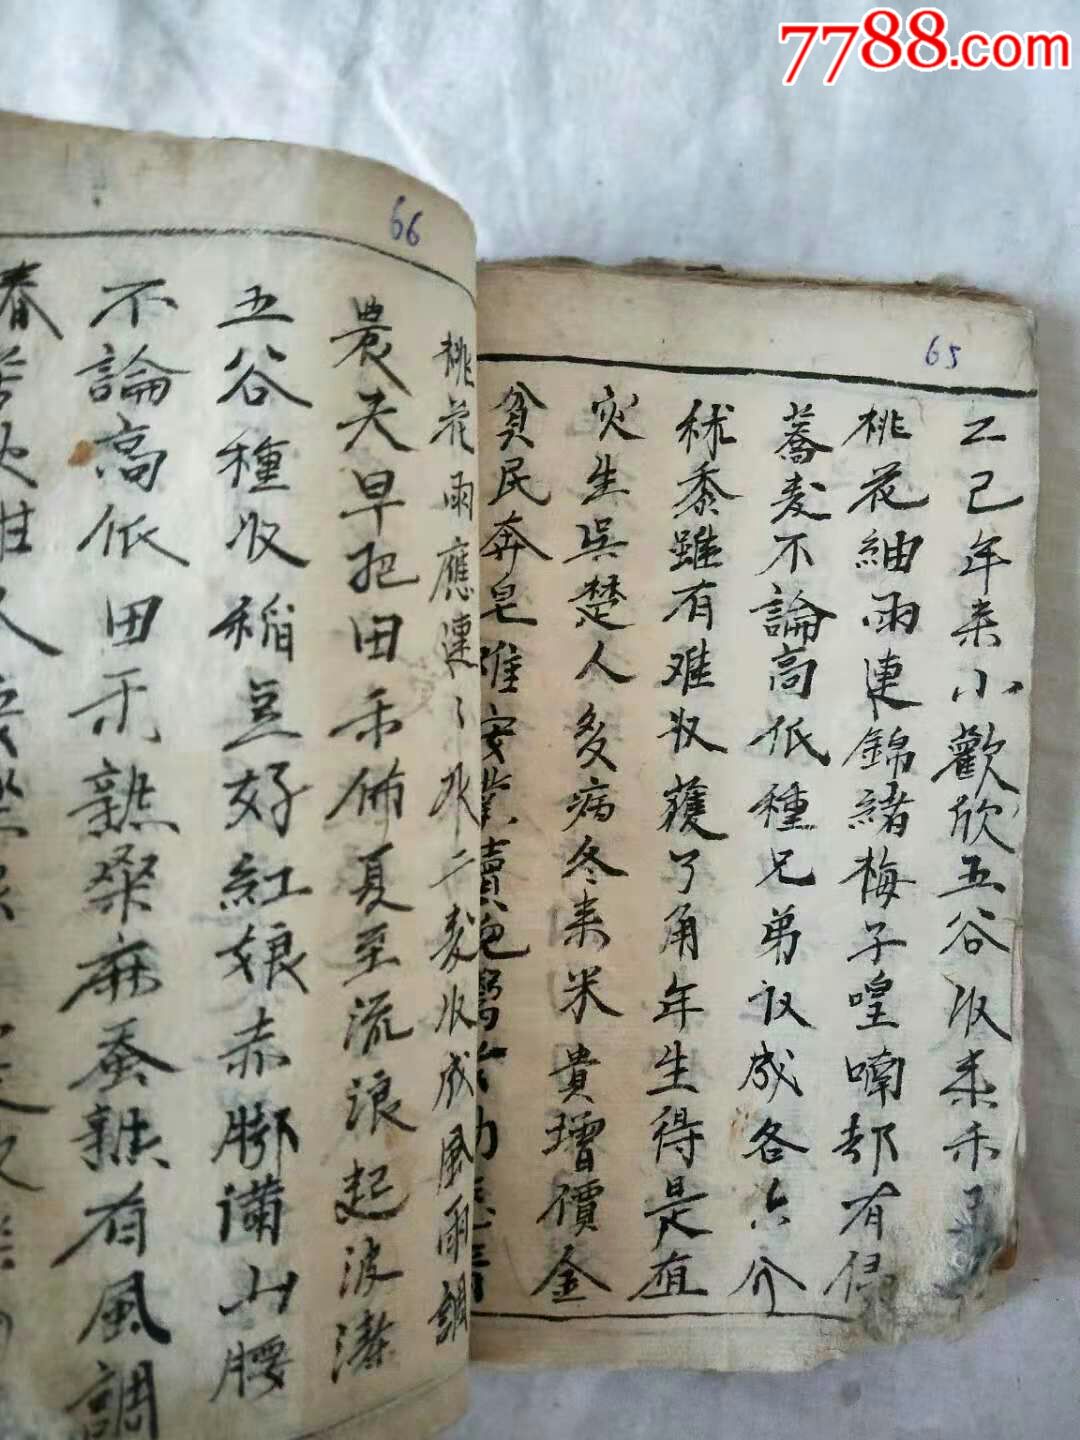 7788.com
65
乙己年来小歡欣五谷收来禾
桃花紬雨連錦緒梅子喤喃却有
蕎麦不論高低種兄弟収成各六介
秫黍雖有难収穫了角年生得是
灾生吳楚人多病冬来米貴增價金
貧民奔皂难安業賣
66
桃花雨應連〻水二麦収成風雨調
農夫早把田禾佈夏至流浪起波濤
五谷種収稻豆好紅娘赤脚满山腰
不論高低田禾熟桑麻蚕熟有風調
春